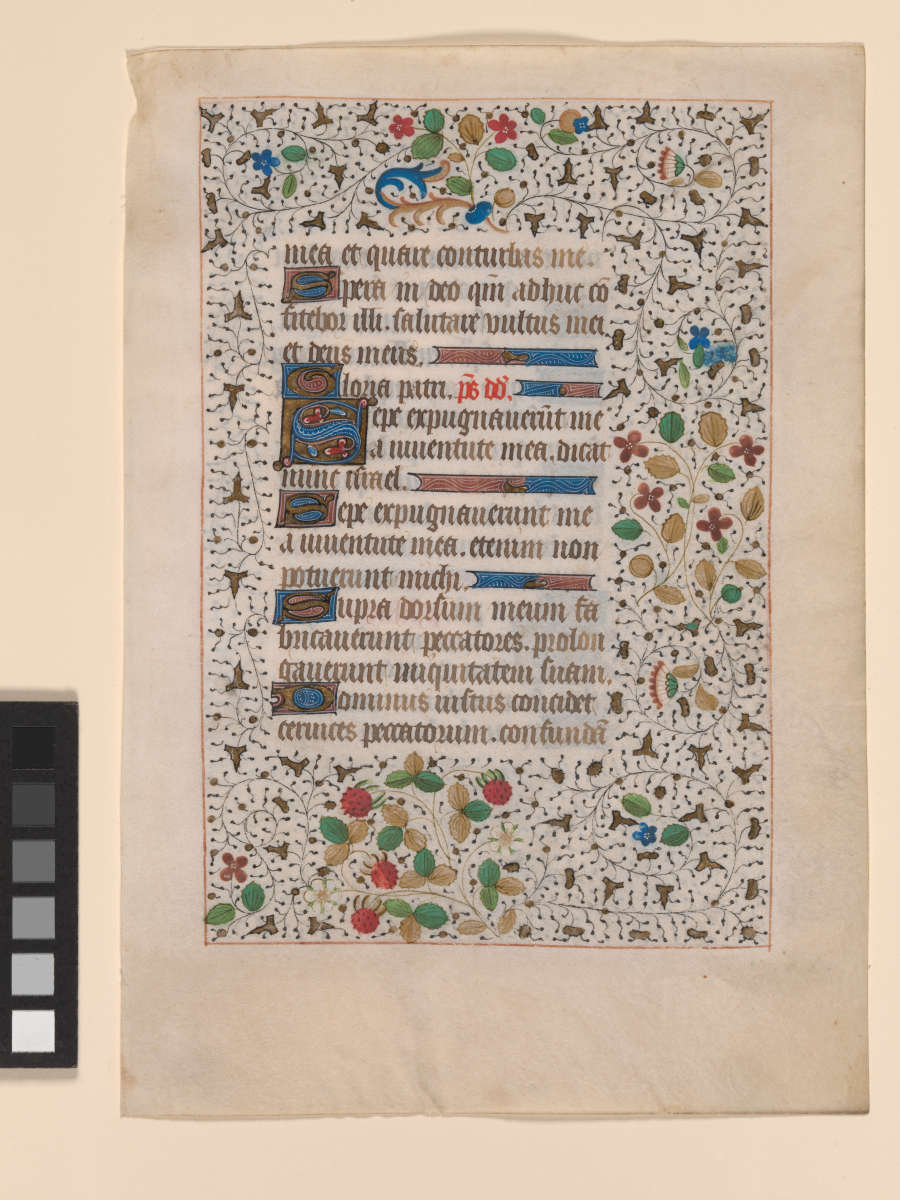 mea et quare conturbas me
Spera in deo qm̄ adhuc cō
fitebor illi. salutare vultus mei
et deus meus.
Gloria patri. ps̄ dd̄.
Sepe expugnauerūt me
a iuuentute mea. dicat
nunc isrl̄ael.
Sepe expugnauerunt me
a iuuentute mea. etenim non
potuerunt michi.
Supra dorsum meum fa
bricauerunt peccatores. prolon
gauerunt iniquitatem suam.
Dominus iustus concidet
ceruices peccatorum. confundāt